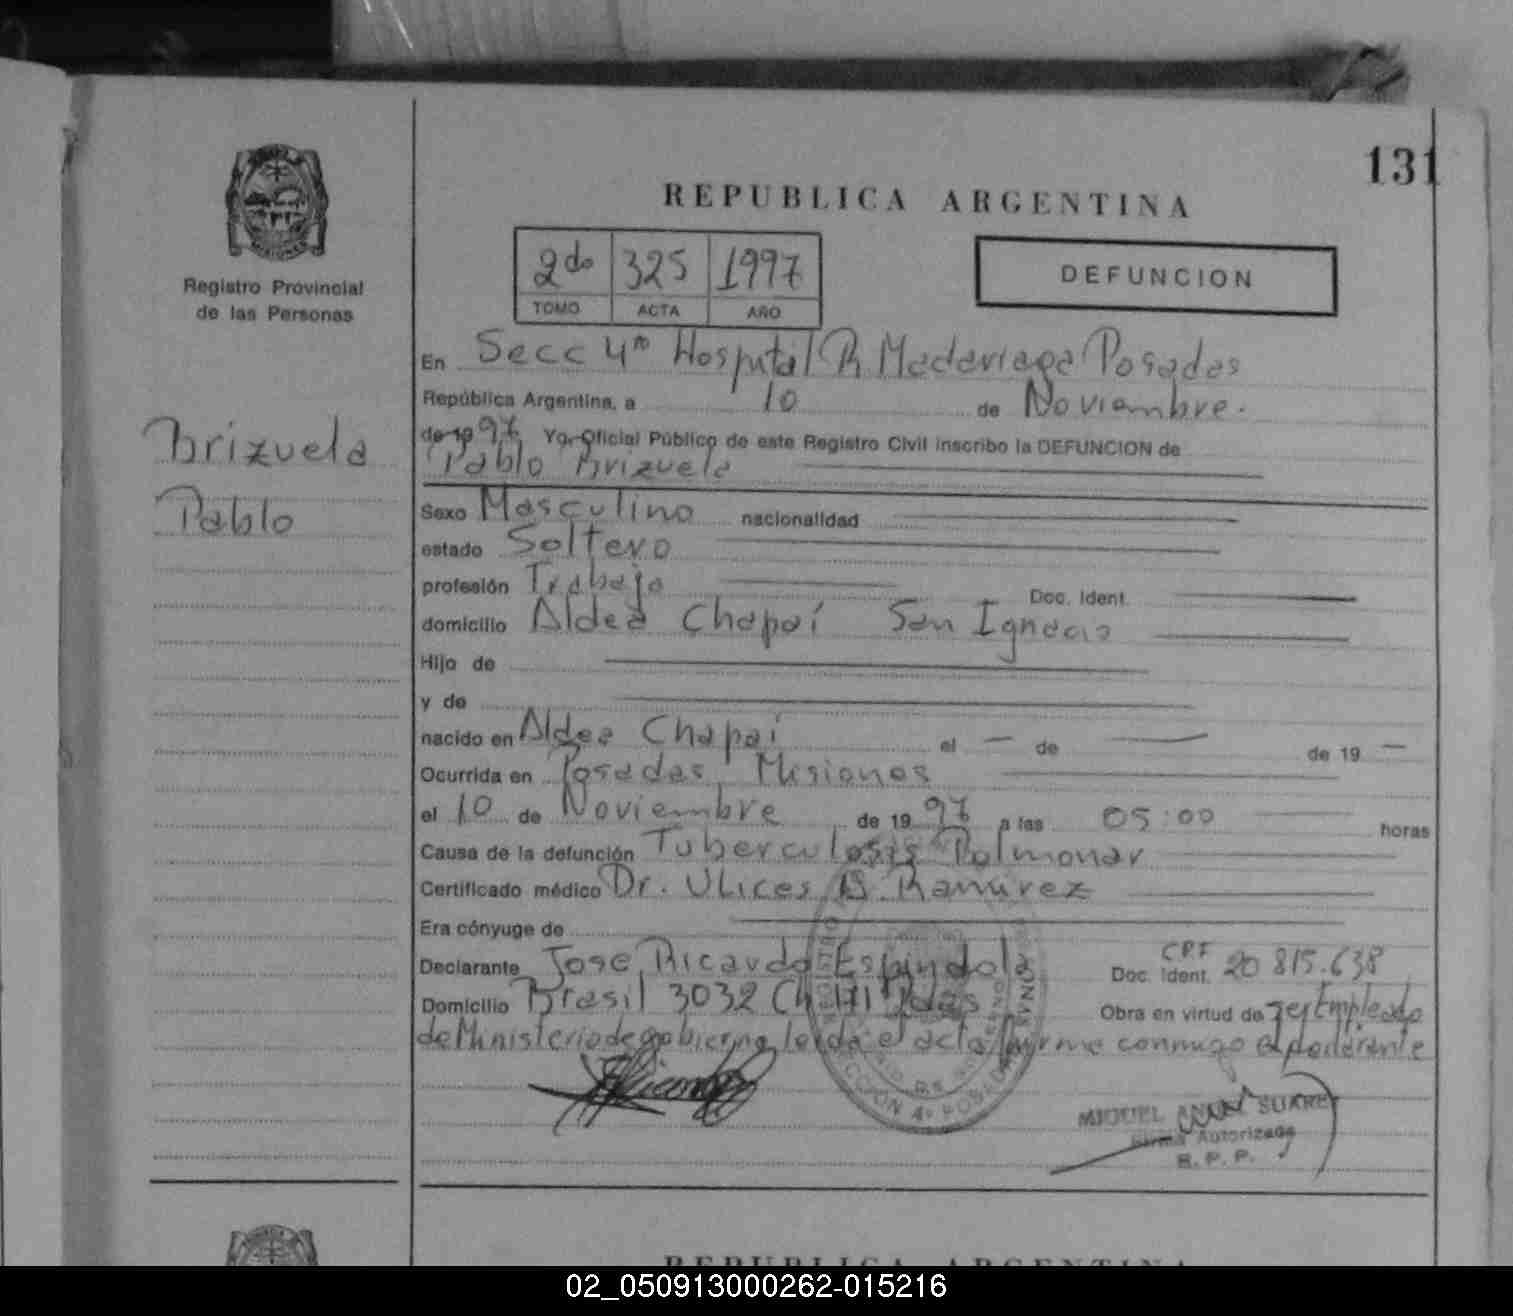 131
REPUBLICA ARGENTINA
2do 325 1997
TOMO ACTA AÑO
DEFUNCION
Registro Provincial
de las Personas
En Secc 4ta Hospital R. Madariaga Posadas
República Argentina, a 10 de Noviembre.
de 19 97 Yo, Oficial Público de este Registro Civil inscribo la DEFUNCION de
Pablo Brizuela
Brizuela
Pablo
Sexo Masculino nacionalidad
estado Soltero
profesión Trabajo Doc. Ident.
domicilio Aldea Chapaí San Ignacio
Hijo de
y de
nacido en Aldea Chapaí el — de — de 19 —
Ocurrida en Posadas Misiones
el 10 de Noviembre de 19 97 a las 05:00 horas
Causa de la defunción Tuberculosis Pulmonar
Certificado médico Dr. Ulices B. Ramirez
Era cónyuge de
Declarante Jose Ricardo Espindola CPF Doc. Ident. 20 815.638
Domicilio Brasil 3032 Ch 171 Pdas Obra en virtud de ser Empleado
de Ministerio de gobierno leida el acta firme conmigo
MIGUEL SUAREZ
Firma Autorizada
R. P. P.
REPUBLICA ARGENTINA
02_050913000262-015216